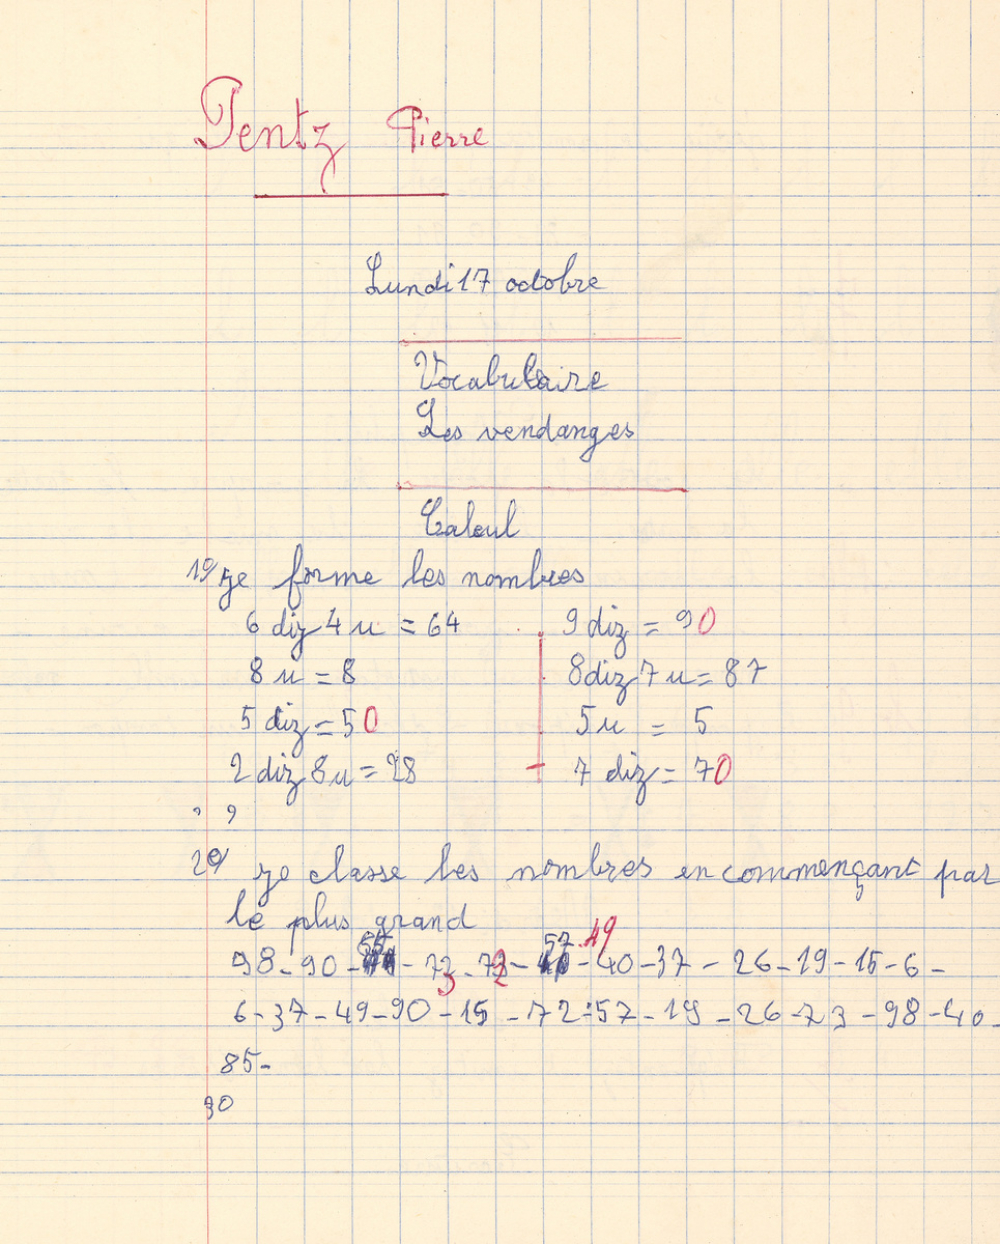 Tentz Pierre
Lundi 17 octobre
Vocabulaire
Les vendanges
Calcul
1º/ je forme les nombres
6 diz 4 u = 64 9 diz = 90
8 u = 8 8 diz 7 u = 87
5 diz = 50 5 u = 5
2 diz 8 u = 28 7 diz = 70
2º/ je classe les nombres en commençant par
le plus grand
57 49
98 - 90 - - 73 - 72 - - 40 - 37 - 26 - 19 - 15 - 6 -
6 - 37 - 49 - 90 - 15 - 72 - 57 - 19 - 26 - 73 - 98 - 40 -
85 -
3º